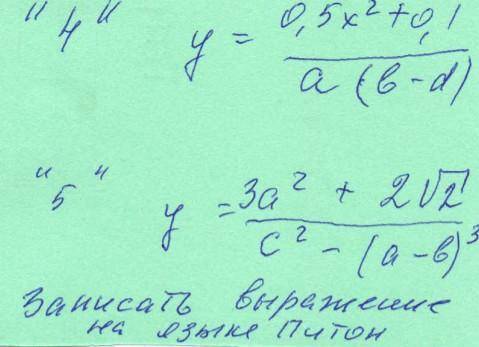 "4" y = (0,5x² + 0,1) / (a (b - d))
"5" y = (3a² + 2√2) / (c² - (a - b)³)
Записать выражение
на языке Питон